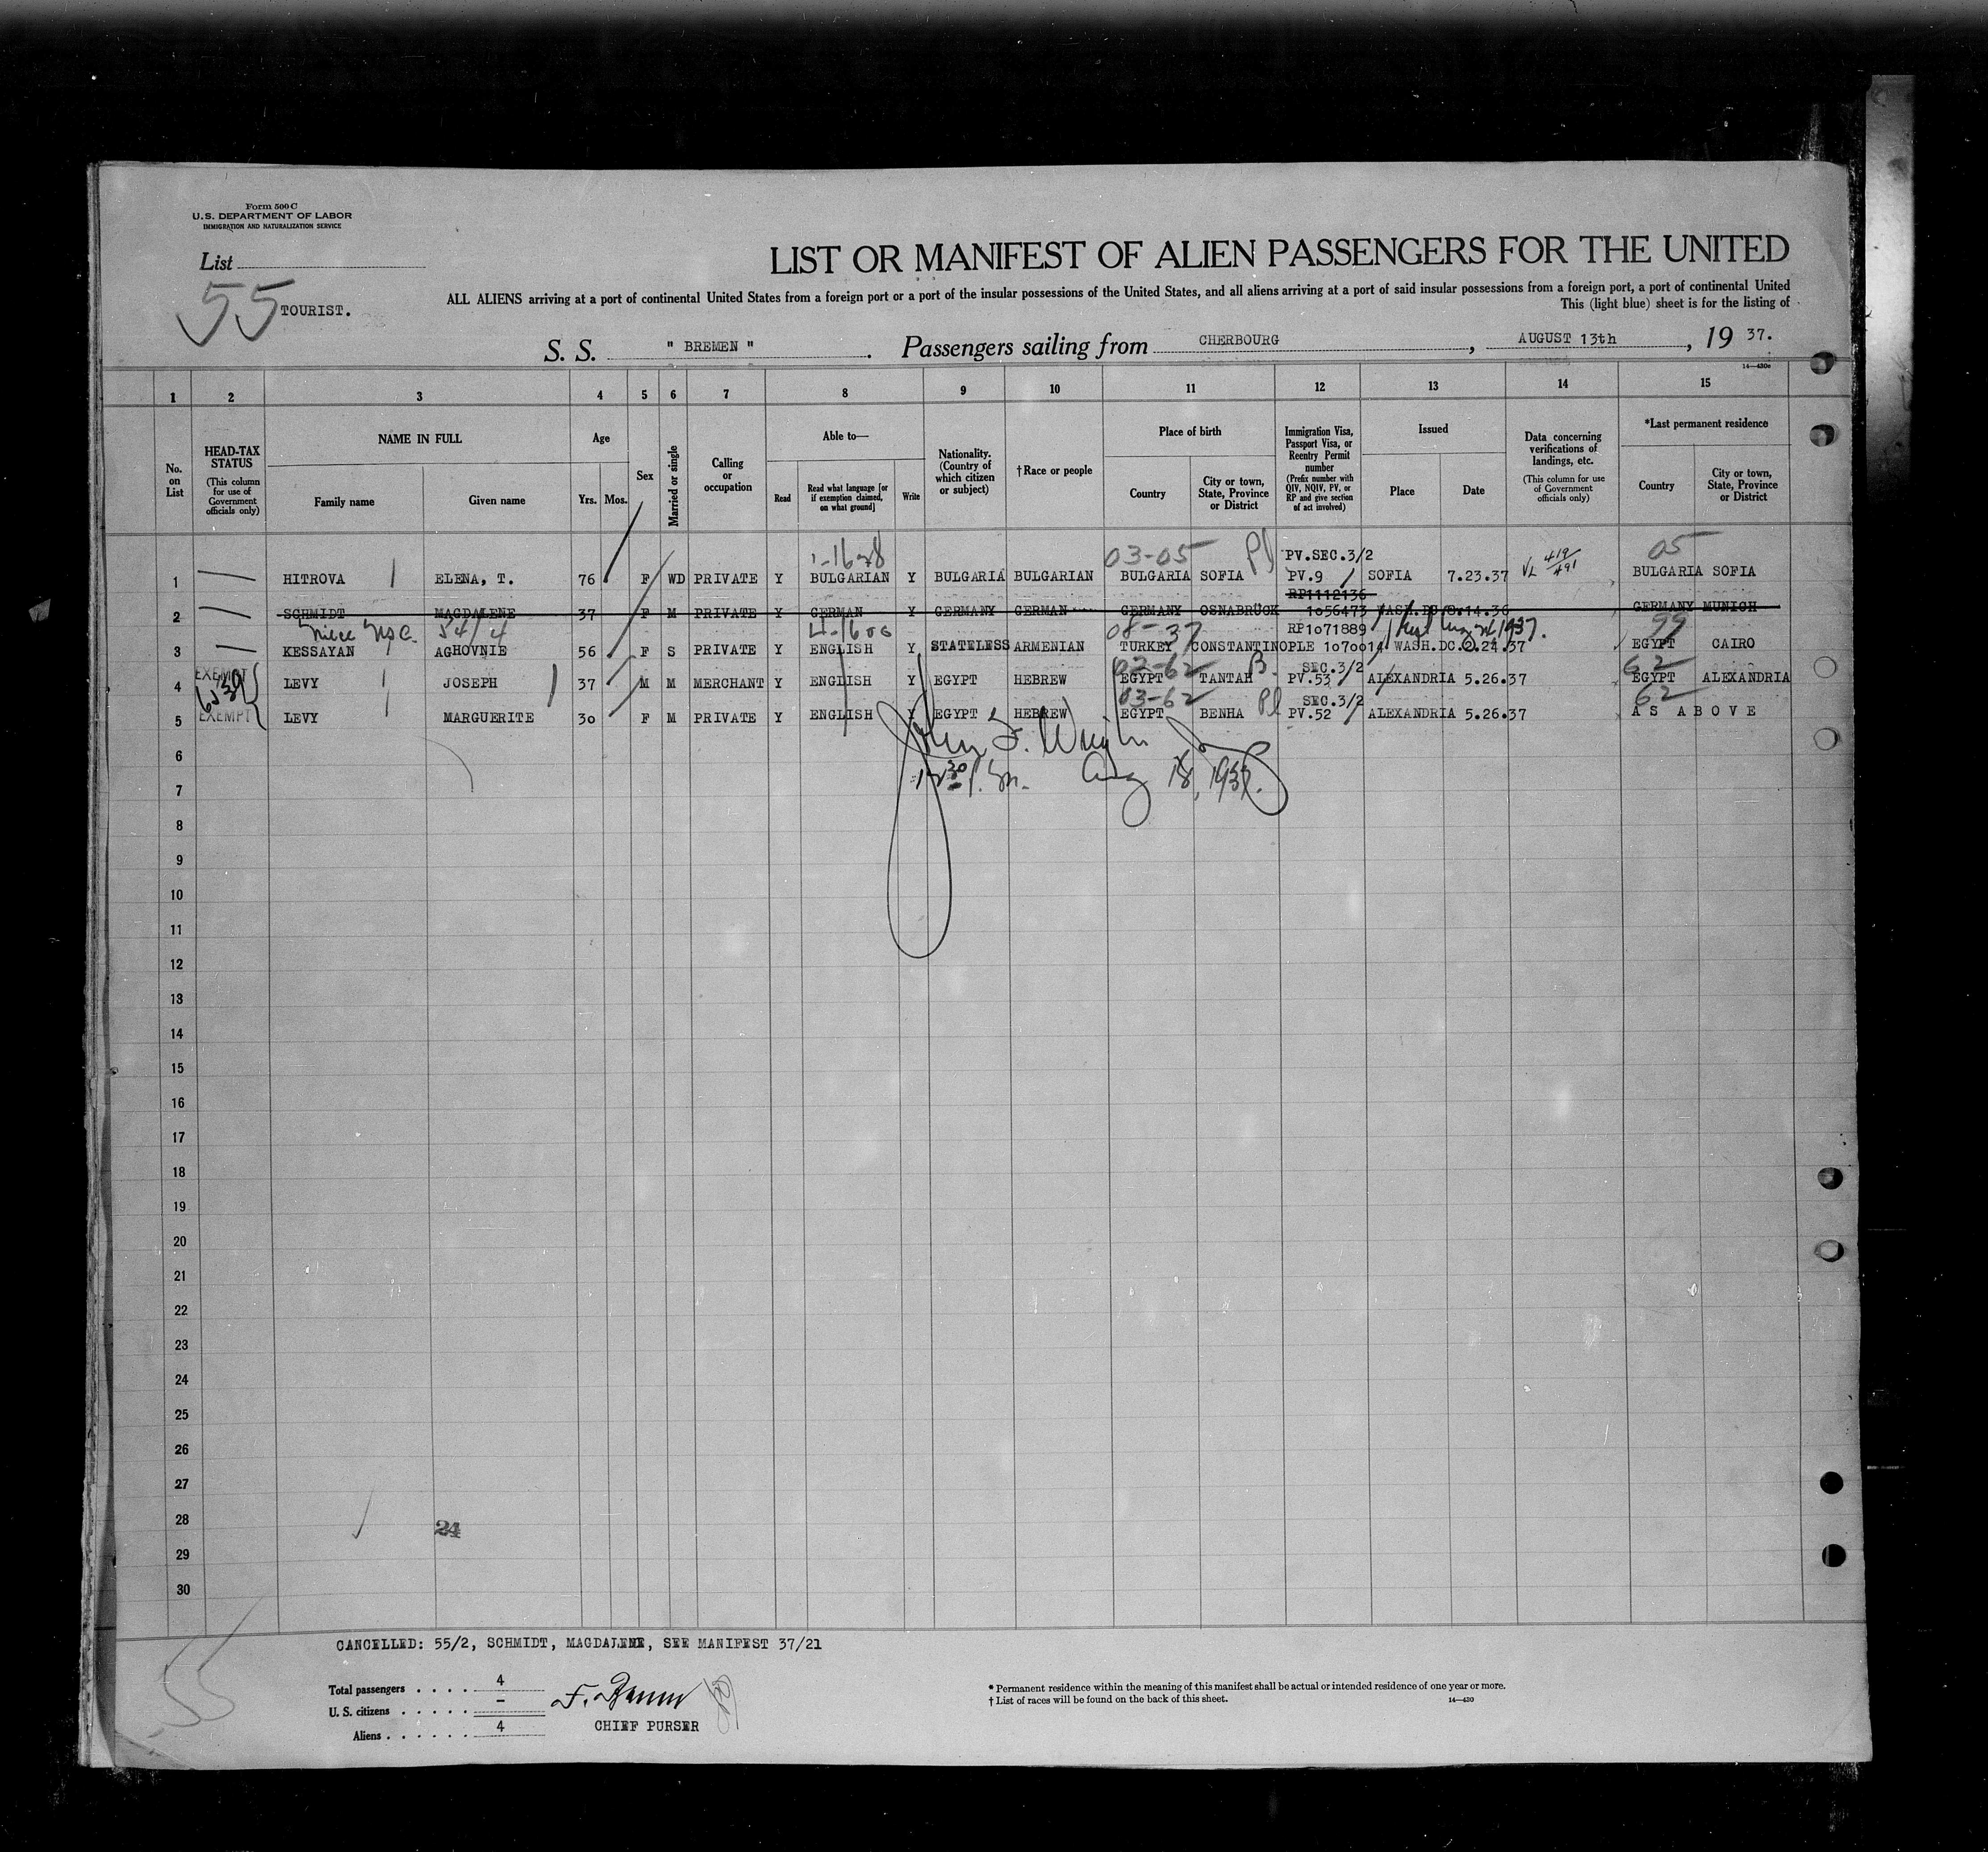 Form 500 C
U.S. DEPARTMENT OF LABOR
IMMIGRATION AND NATURALIZATION SERVICE
List
55 TOURIST.
LIST OR MANIFEST OF ALIEN PASSENGERS FOR THE UNITED
ALL ALIENS arriving at a port of continental United States from a foreign port or a port of the insular possessions of the United States, and all aliens arriving at a port of said insular possessions from a foreign port, a port of continental United
This (light blue) sheet is for the listing of
S. S. " BREMEN ". Passengers sailing from CHERBOURG, AUGUST 13th, 19 37.
14—430c
1 2 3 4 5 6 7 8 9 10 11 12 13 14 15
No. on List
HEAD-TAX STATUS (This column for use of Government officials only)
NAME IN FULL
Family name
Given name
Age
Yrs. Mos.
Sex
Married or single
Calling or occupation
Able to—
Read
Read what language [or if exemption claimed, on what ground]
Write
Nationality. (Country of which citizen or subject)
†Race or people
Place of birth
Country
City or town, State, Province or District
Immigration Visa, Passport Visa, or Reentry Permit number (Prefix number with QIV, NQIV, PV, or RP and give section of act involved)
Issued
Place
Date
Data concerning verifications of landings, etc. (This column for use of Government officials only)
*Last permanent residence
Country
City or town, State, Province or District
03-05 Pl PV.SEC.3/2 05
1 HITROVA ELENA, T. 76 F WD PRIVATE Y BULGARIAN Y BULGARIA BULGARIAN BULGARIA SOFIA PV.9 SOFIA 7.23.37 VL 419/491 BULGARIA SOFIA
RP1112136
2 SCHMIDT MAGDALENE 37 F M PRIVATE Y GERMAN Y GERMANY GERMAN GERMANY OSNABRÜCK 1056473 GERMANY MUNICH
54/4 08-37 RP1071889 1937. 99
3 KESSAYAN AGHOVNIE 56 F S PRIVATE Y ENGLISH Y STATELESS ARMENIAN TURKEY CONSTANTINOPLE 1070014 WASH.DC. 24.37 EGYPT CAIRO
EXEMPT 03-62 SEC.3/2 62
4 LEVY JOSEPH 37 M M MERCHANT Y ENGLISH Y EGYPT HEBREW EGYPT TANTAH PV.53 ALEXANDRIA 5.26.37 EGYPT ALEXANDRIA
03-62 Pl SEC.3/2 62
5 EXEMPT LEVY MARGUERITE 30 F M PRIVATE Y ENGLISH Y EGYPT HEBREW EGYPT BENHA PV.52 ALEXANDRIA 5.26.37 AS ABOVE
John F. Wright
6
12 30 P.M. Aug 18, 1937.
7
8
9
10
11
12
13
14
15
16
17
18
19
20
21
22
23
24
25
26
27
28 24
29
30
55
CANCELLED: 55/2, SCHMIDT, MAGDALENE, SEE MANIFEST 37/21
Total passengers . . . . 4
U. S. citizens . . . . . –
Aliens . . . . . . 4
CHIEF PURSER
* Permanent residence within the meaning of this manifest shall be actual or intended residence of one year or more.
† List of races will be found on the back of this sheet. 14—430